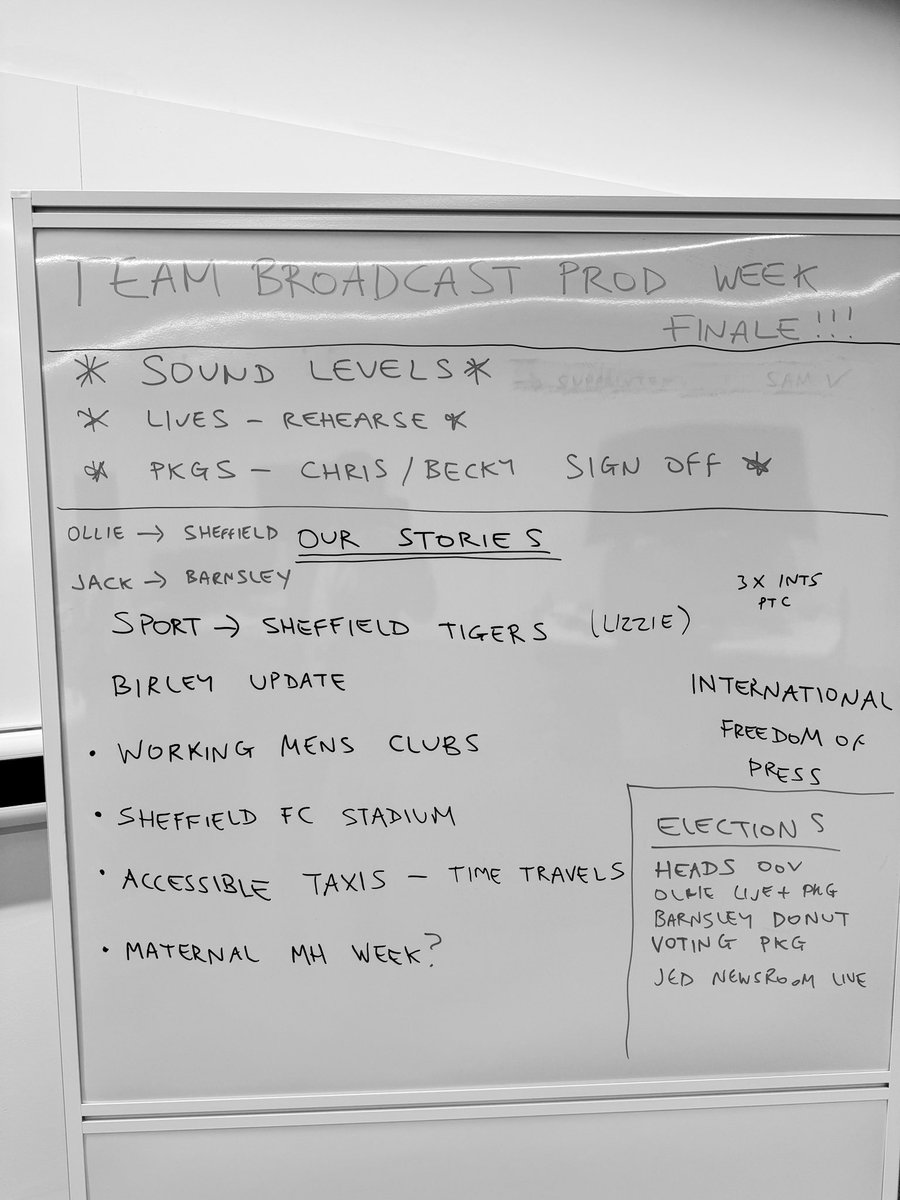 TEAM BROADCAST PROD WEEK
FINALE!!!
* SOUND LEVELS *
* LIVES – REHEARSE *
* PKGS – CHRIS/BECKY SIGN OFF *
OLLIE → SHEFFIELD
OUR STORIES
JACK → BARNSLEY
3 X INTS
PTC
SPORT → SHEFFIELD TIGERS (LIZZIE)
BIRLEY UPDATE
INTERNATIONAL
FREEDOM OF
PRESS
• WORKING MENS CLUBS
• SHEFFIELD FC STADIUM
• ACCESSIBLE TAXIS – TIME TRAVELS
• MATERNAL MH WEEK?
ELECTIONS
HEADS OOV
OLLIE LIVE + PKG
BARNSLEY DONUT
VOTING PKG
JED NEWSROOM LIVE